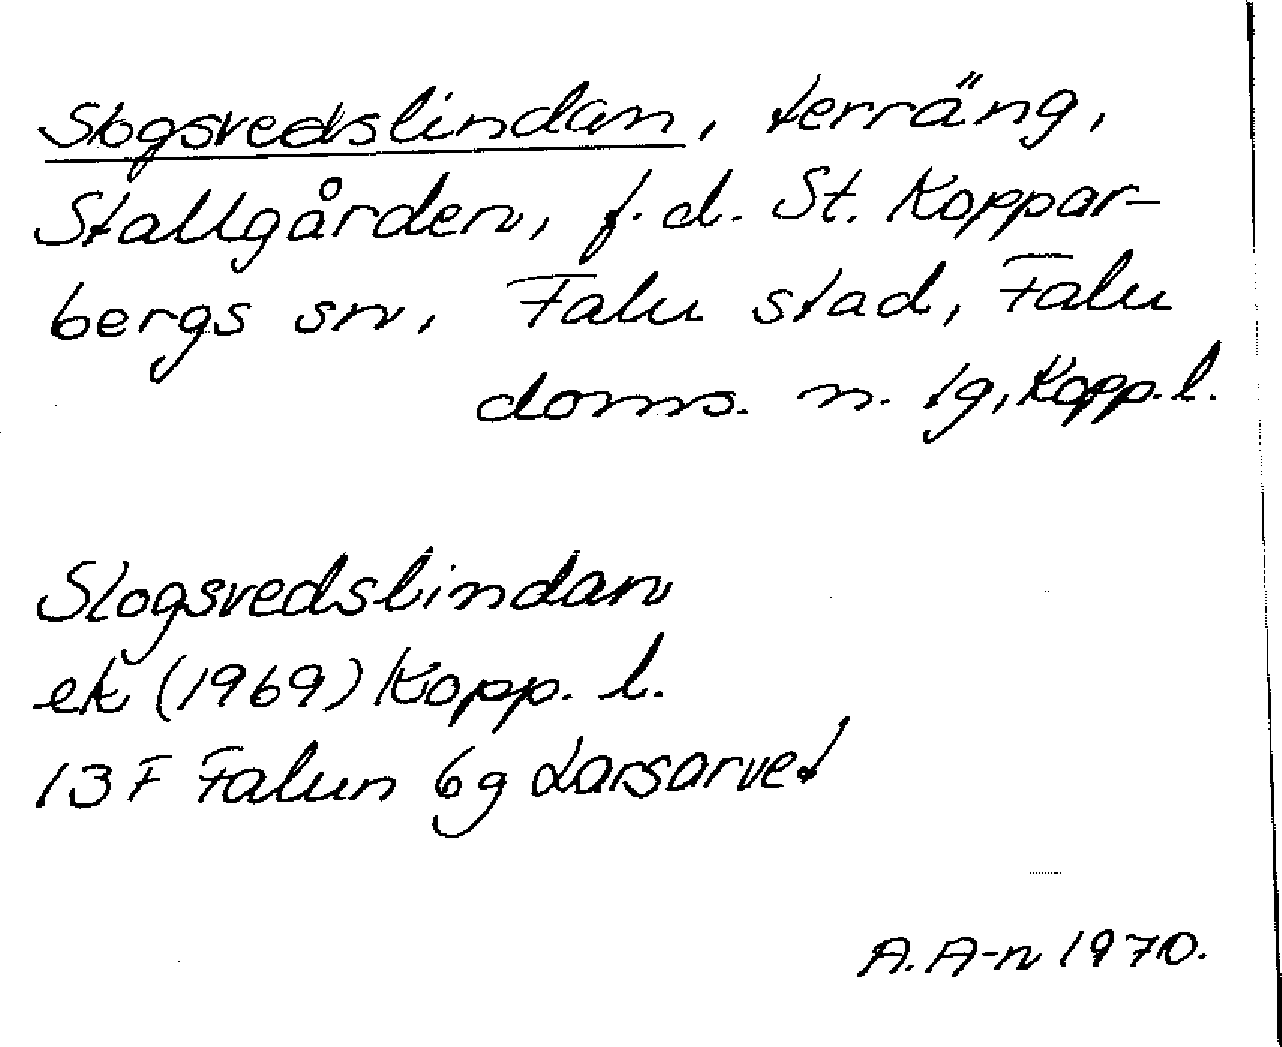 Slogsvedslindan, terräng,
Stallgården, f.d. St. Koppar-
bergs sn, Falu stad, Falu
doms. n. tg, Kopp. l.
Slogsvedslindan
ek (1969) Kopp. l.
13 F Falun 6g Larsarvet
A. A-n 1970.